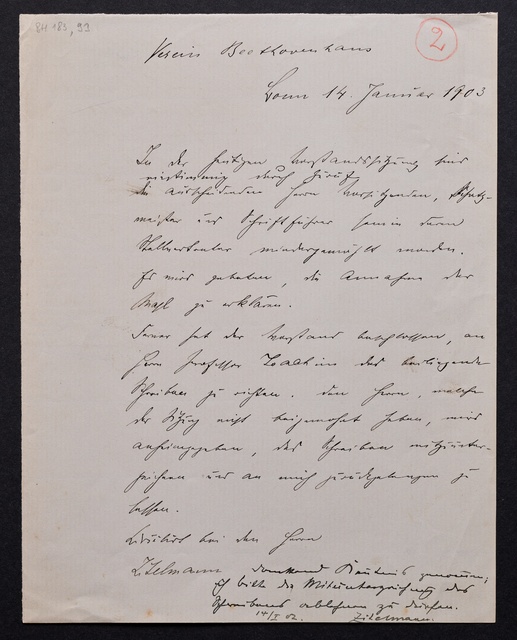 BH 183, 93
2
Verein Beethovenhaus
Bonn 14. Januar 1903
In der heutigen Vorstandssitzung sind
einstimmig durch Zuruf
die ausscheidenden Herrn Vorsitzenden, Schatz-
meister und Schriftführer sowie deren
Stellvertreter wiedergewählt worden.
Es wird gebeten, die Annahme der
Wahl zu erklären.
Ferner hat der Vorstand beschlossen, an
Herrn Professor Joachim das beiliegende
Schreiben zu richten. Den Herrn, welche
der Sitzung nicht beigewohnt haben, wird
anheimgegeben, das Schreiben mitzuunter-
zeichnen und an mich zurückgelangen zu
lassen.
bei den Herrn
Zitelmann dankend Kenntnis genommen;
ich bitte die Mitunterzeichnung des
Schreibens ablehnen zu dürfen.
Zitelmann.